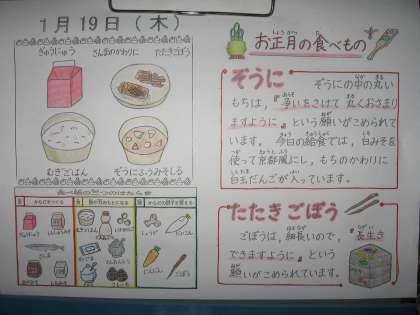 1月19日（木）
ぎゅうにゅう
さんまのかわりに
たたきごぼう
むぎごはん
ぞうにふうみそしる
お正月の食べもの
しょうがつ
ぞうに
ぞうにの中の丸い
もちは、争いをさけて丸くおさまり
ますようにという願いがこめられて
います。今日の給食では、白みそを
使って京都風にし、もちのかわりに
白玉だんごが入っています。
たたきごぼう
ごぼうは、細長いので、長生き
できますようにという
願いがこめられています。
ぎゅうにゅう
さんま
むぎごはん
しょうが
にんじん
ごぼう